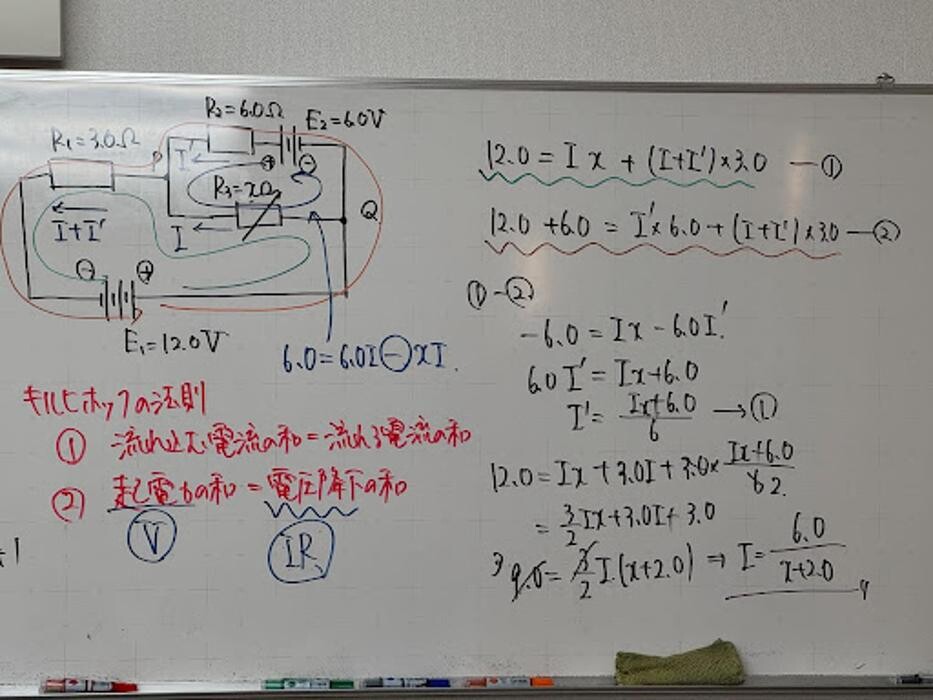 R₂=6.0Ω
E₂=6.0V
R₁=3.0Ω
P
I'
⊕
⊖
R₃=xΩ
Q
I+I'
I
⊖ ⊕
E₁=12.0V
6.0=6.0I⊖xI.
キルヒホッフの法則
① 流れ込む電流の和=流れ出る電流の和
② 起電力の和=電圧降下の和
V
IR
12.0=Ix+(I+I')×3.0 ―①
12.0+6.0=I'×6.0+(I+I')×3.0―②
①-②
-6.0=Ix-6.0I'
6.0I'=Ix+6.0
I'=(Ix+6.0)/6 →①
12.0=Ix+3.0I+3.0×(Ix+6.0)/6 2.
=3/2Ix+3.0I+3.0
3 9.0=3/2I(x+2.0) ⇒ I=6.0/(x+2.0)